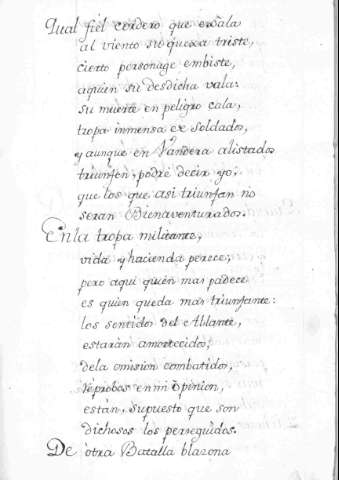 Qual fiel cordero que exàla
al viento su quexa triste,
cierto personage embiste,
aquien su desdicha vala:
su muerte en peligro cala,
tropa inmensa de Soldados,
y aunque en Vandera alistados
triunfen, podrè decir yo,
que los que asi triunfan no
seran Bienaventurados.
En la tropa militante,
vida y hacienda perece,
pero aqui quièn mas padece
es quièn queda mas triunfante:
los sentidos del Atlante,
estaràn amortecidos,
dela omision combatidos,
Reprobos en mi Opinion,
estàn, supuesto que son
dichosos los perseguidos.
De otra Batalla blazona